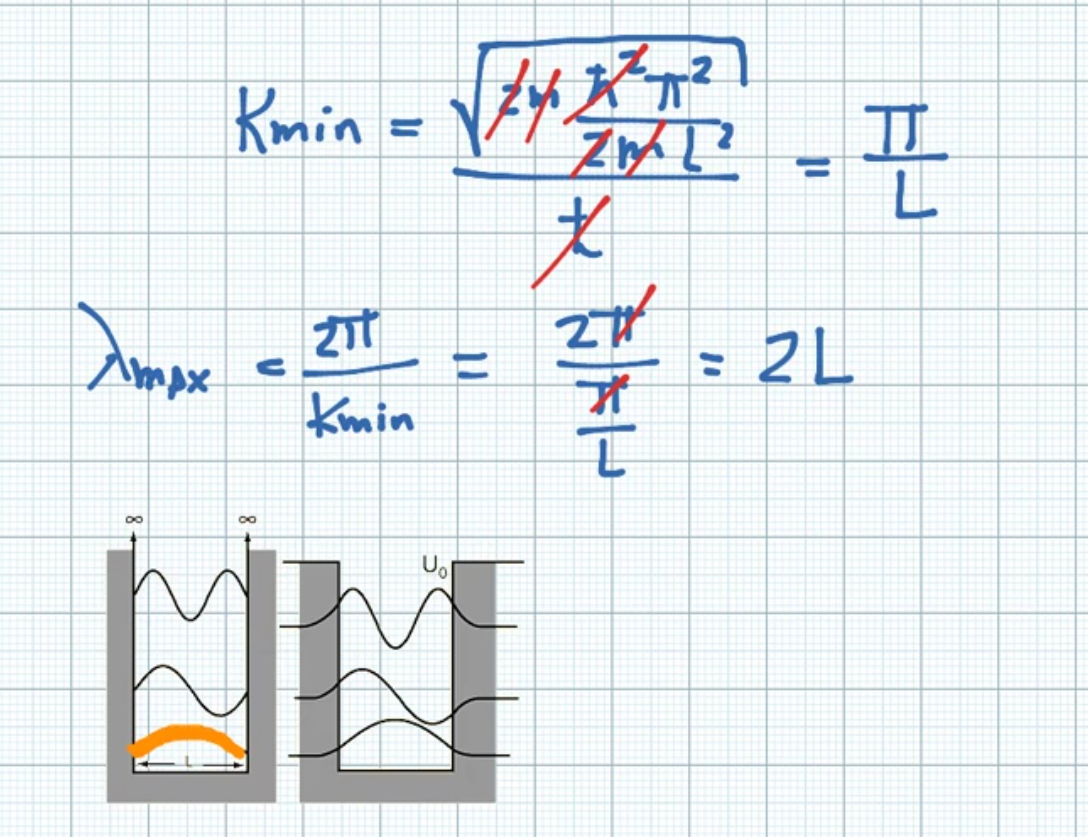 Kmin = √(2m ħ²π² / 2mL²) / ħ = π / L
λmax = 2π / Kmin = 2π / (π / L) = 2L
∞ ∞
U₀
L